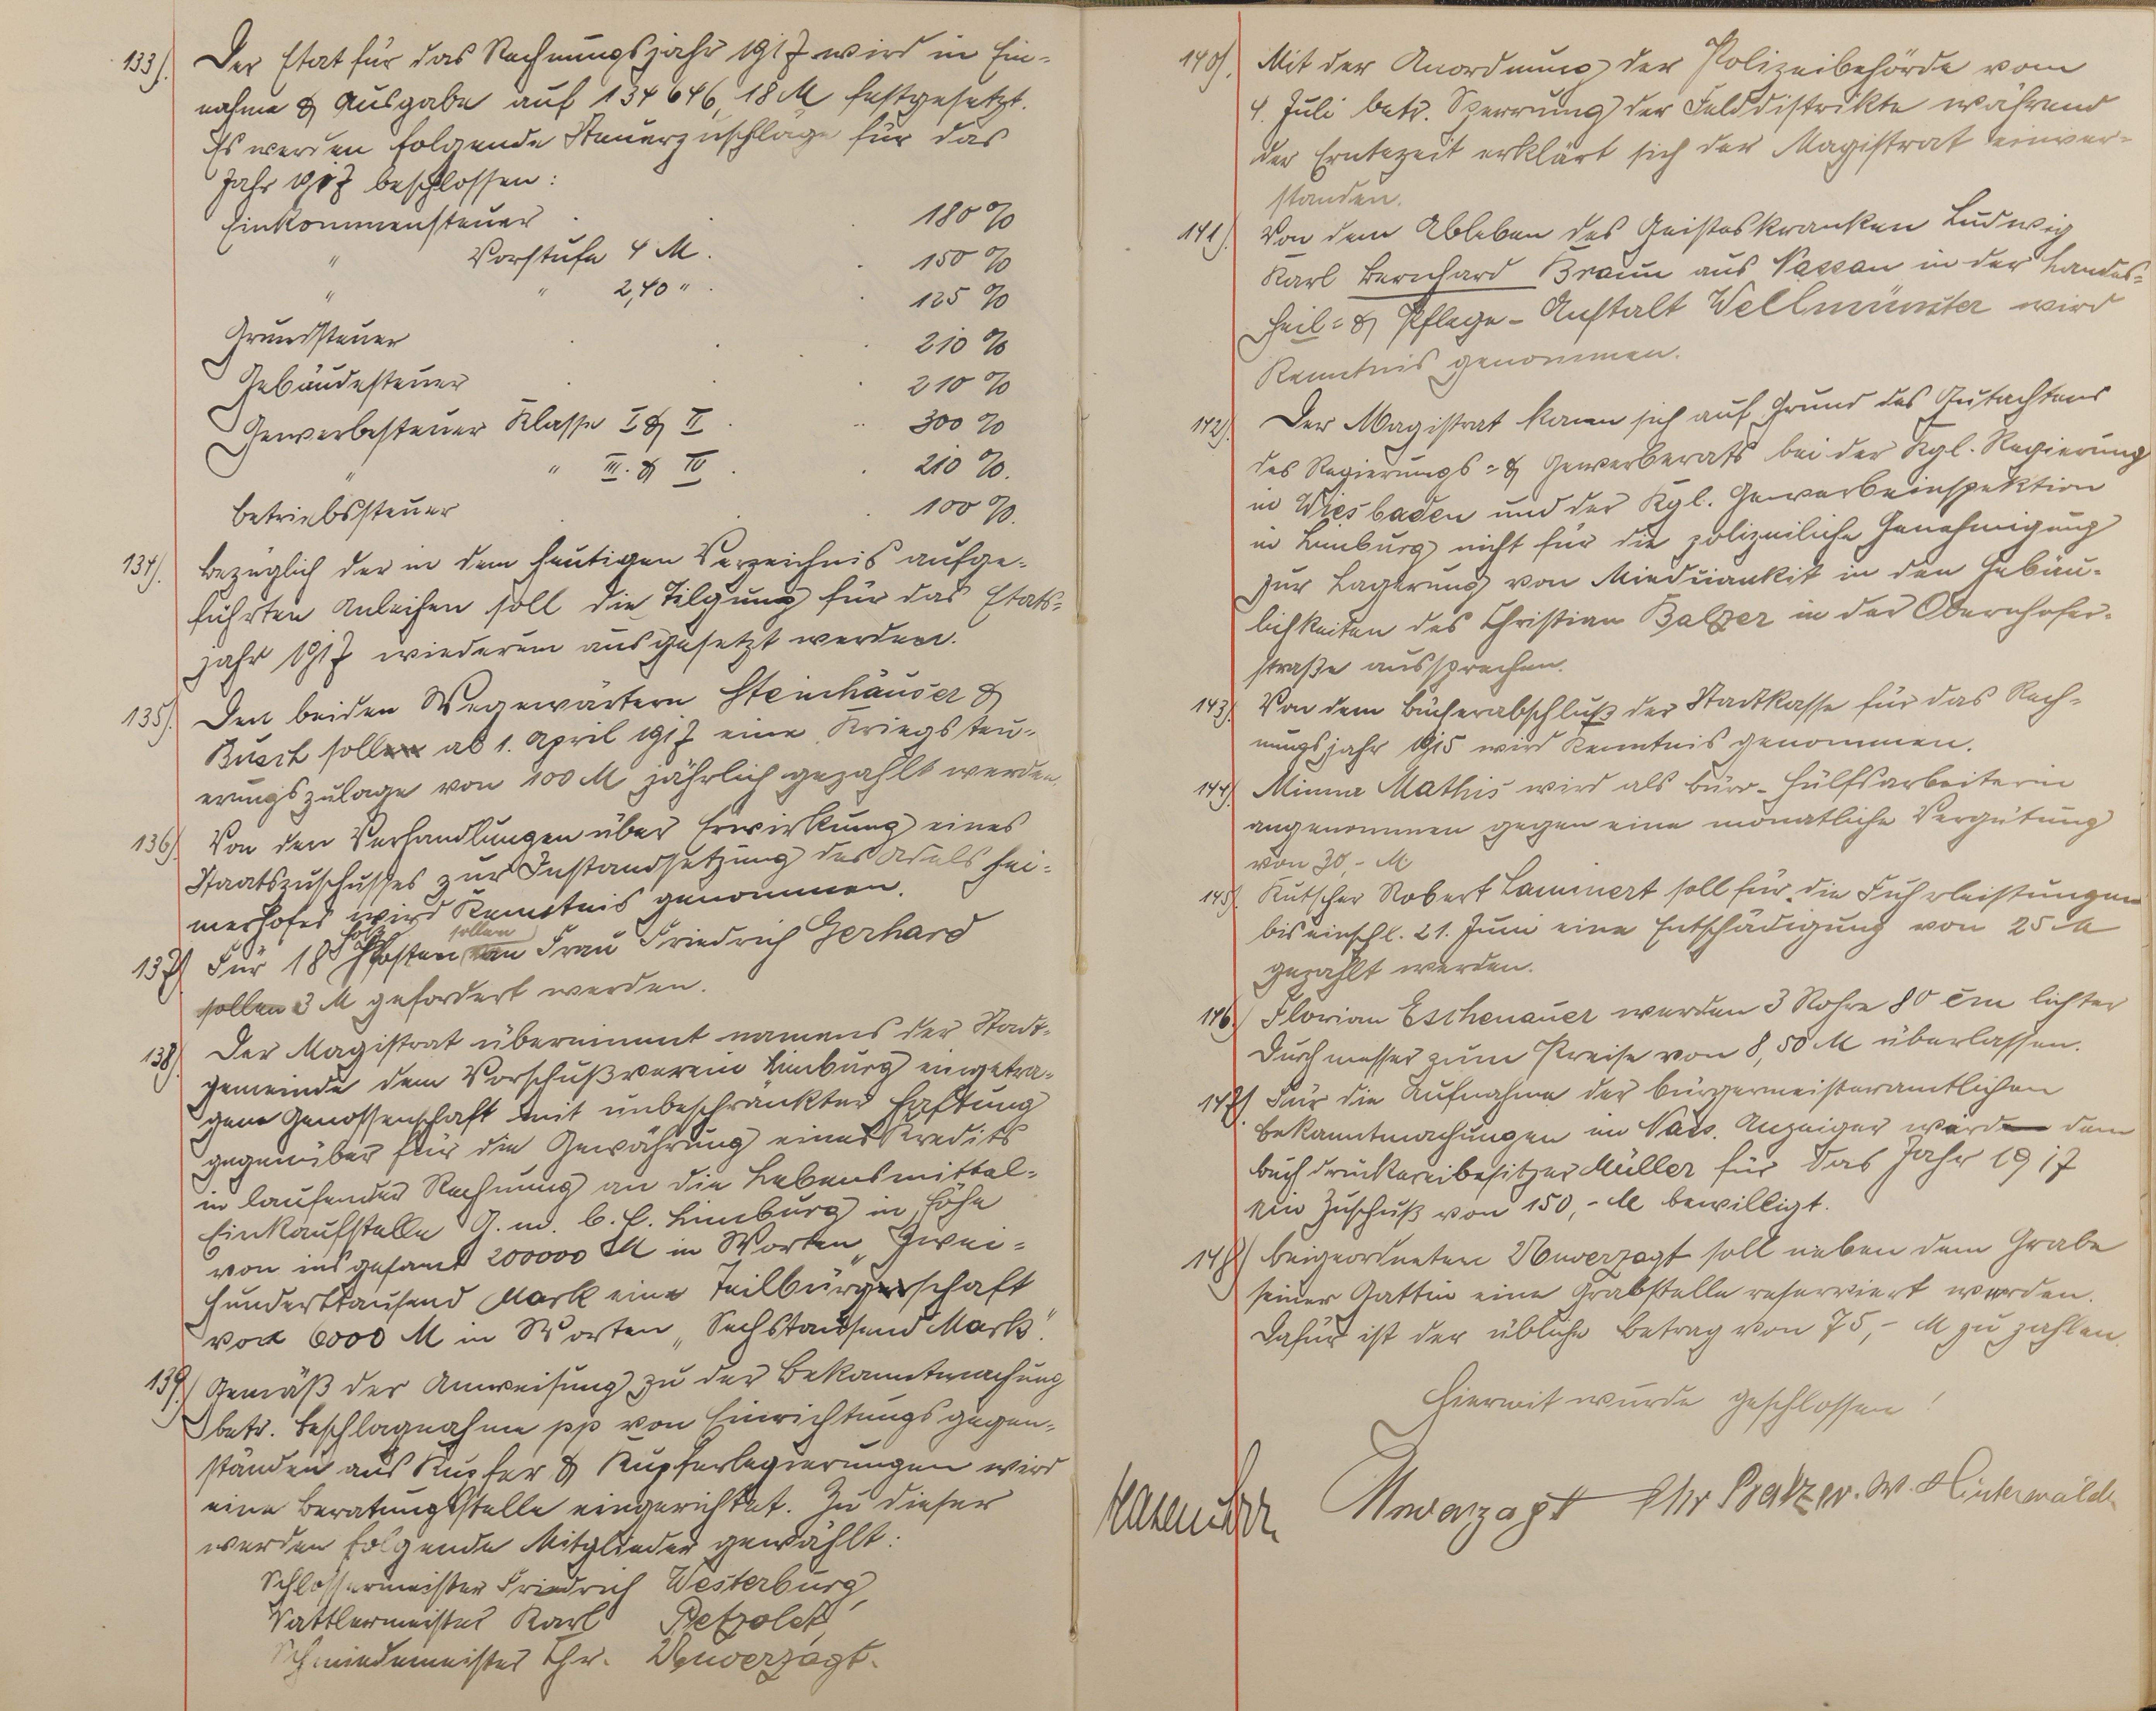 133). Der Etat für das Rechnungsjahr 1917 wird in Ein-
nahme & Ausgabe auf 134646,18 M festgesetzt.
Es werden folgende Steuerzuschläge für das
Jahr 1917 beschlossen:
Einkommensteuer . . . 180 %
" Vorstufe 4 M. . 150 %
" " 2,40 " . . 125 %
Grundsteuer . . . 210 %
Gebäudesteuer . . . 210 %
Gewerbesteuer Klasse I & II . . 300 %
" " III. & IV . . 210 %.
Betriebssteuer . . . 100 %.
134). Bezüglich der in dem heutigen Verzeichnis aufge-
führten Anleihen soll die Tilgung für das Etats-
jahr 1917 wiederum ausgesetzt werden.
135). Den beiden Wegewärtern Steinhäuser &
Busch soll ab 1. April 1917 eine Kriegsteu-
erungszulage von 100 M jährlich gezahlt werden.
136). Von den Verhandlungen über Erwirkung eines
Staatszuschusses zur Instandsetzung des Adelshei-
merhofes wird Kenntnis genommen.
137) Für 18 Holz Pfosten sollen an Frau Friedrich Gerhard
sollen 3 M gefordert werden.
138). Der Magistrat übernimmt namens der Stadt-
gemeinde dem Vorschußverein Limburg eingetra-
gene Genossenschaft mit unbeschränkter Haftung
gegenüber für die Gewährung eines Kredits
in laufender Rechnung an die Lebensmittel-
Einkaufstelle G. m. b. H. Limburg in Höhe
von insgesamt 200000 M in Worten „Zwei-
hunderttausend Mark eine Teilbürgschaft
von 6000 M in Worten „Sechstausend Mark".
139.) Gemäß der Anweisung zu der Bekanntmachung
betr. Beschlagnahme pp von Einrichtungsgegen-
ständen aus Kupfer & Kupferlegierungen wird
eine Beratungsstelle eingerichtet. Zu dieser
werden folgende Mitglieder gewählt:
Schlossermeister Friedrich Westerburg,
Sattlermeister Karl Petzoldt,
Schmiedemeister Chr. Unverzagt.
140). Mit der Anordnung der Polizeibehörde vom
4. Juli betr. Sperrung der Felddistrikte während
der Erntezeit erklärt sich der Magistrat einver-
standen.
141). Von dem Ableben des Geisteskranken Ludwig
Karl Bernhard Braun aus Nassau in der Landes-
Heil- & Pflege-Anstalt Weilmünster wird
Kenntnis genommen.
142). Der Magistrat kann sich auf Grund des Gutachtens
des Regierungs- & Gewerberats bei der Kgl. Regierung
in Wiesbaden und der Kgl. Gewerbeinspektion
in Limburg nicht für die polizeiliche Genehmigung
zur Lagerung von Miedziankit in den Gebäu-
lichkeiten des Christian Balzer in der Obernhofer-
straße aussprechen.
143). Von dem Bücherabschluß der Stadtkasse für das Rech-
nungsjahr 1915 wird Kenntnis genommen.
144). Minna Mathis wird als Büro-Hülfsarbeiterin
angenommen gegen eine monatliche Vergütung
von 30,- M
145). Kutscher Robert Lammert soll für die Fuhrleistungen
bis einschl. 21. Juni eine Entschädigung von 25 M
gezahlt werden.
146.) Florian Eschenauer werden 3 Rohre 80 cm lichter
Durchmesser zum Preise von 8,50 M überlassen.
147) Für die Aufnahme der bürgermeisteramtlichen
Bekanntmachungen im Nass. Anzeiger wird dem
Buchdruckereibesitzer Müller für das Jahr 1917
ein Zuschuß von 150,- M bewilligt.
148) Beigeordneten Unverzagt soll neben dem Grabe
seiner Gattin eine Grabstelle reserviert werden.
Dafür ist der übliche Betrag von 75,- M zu zahlen.
Hiermit wurde geschlossen!
Hasenclever Unverzagt Chr Balzer. W. Hinterwäldler